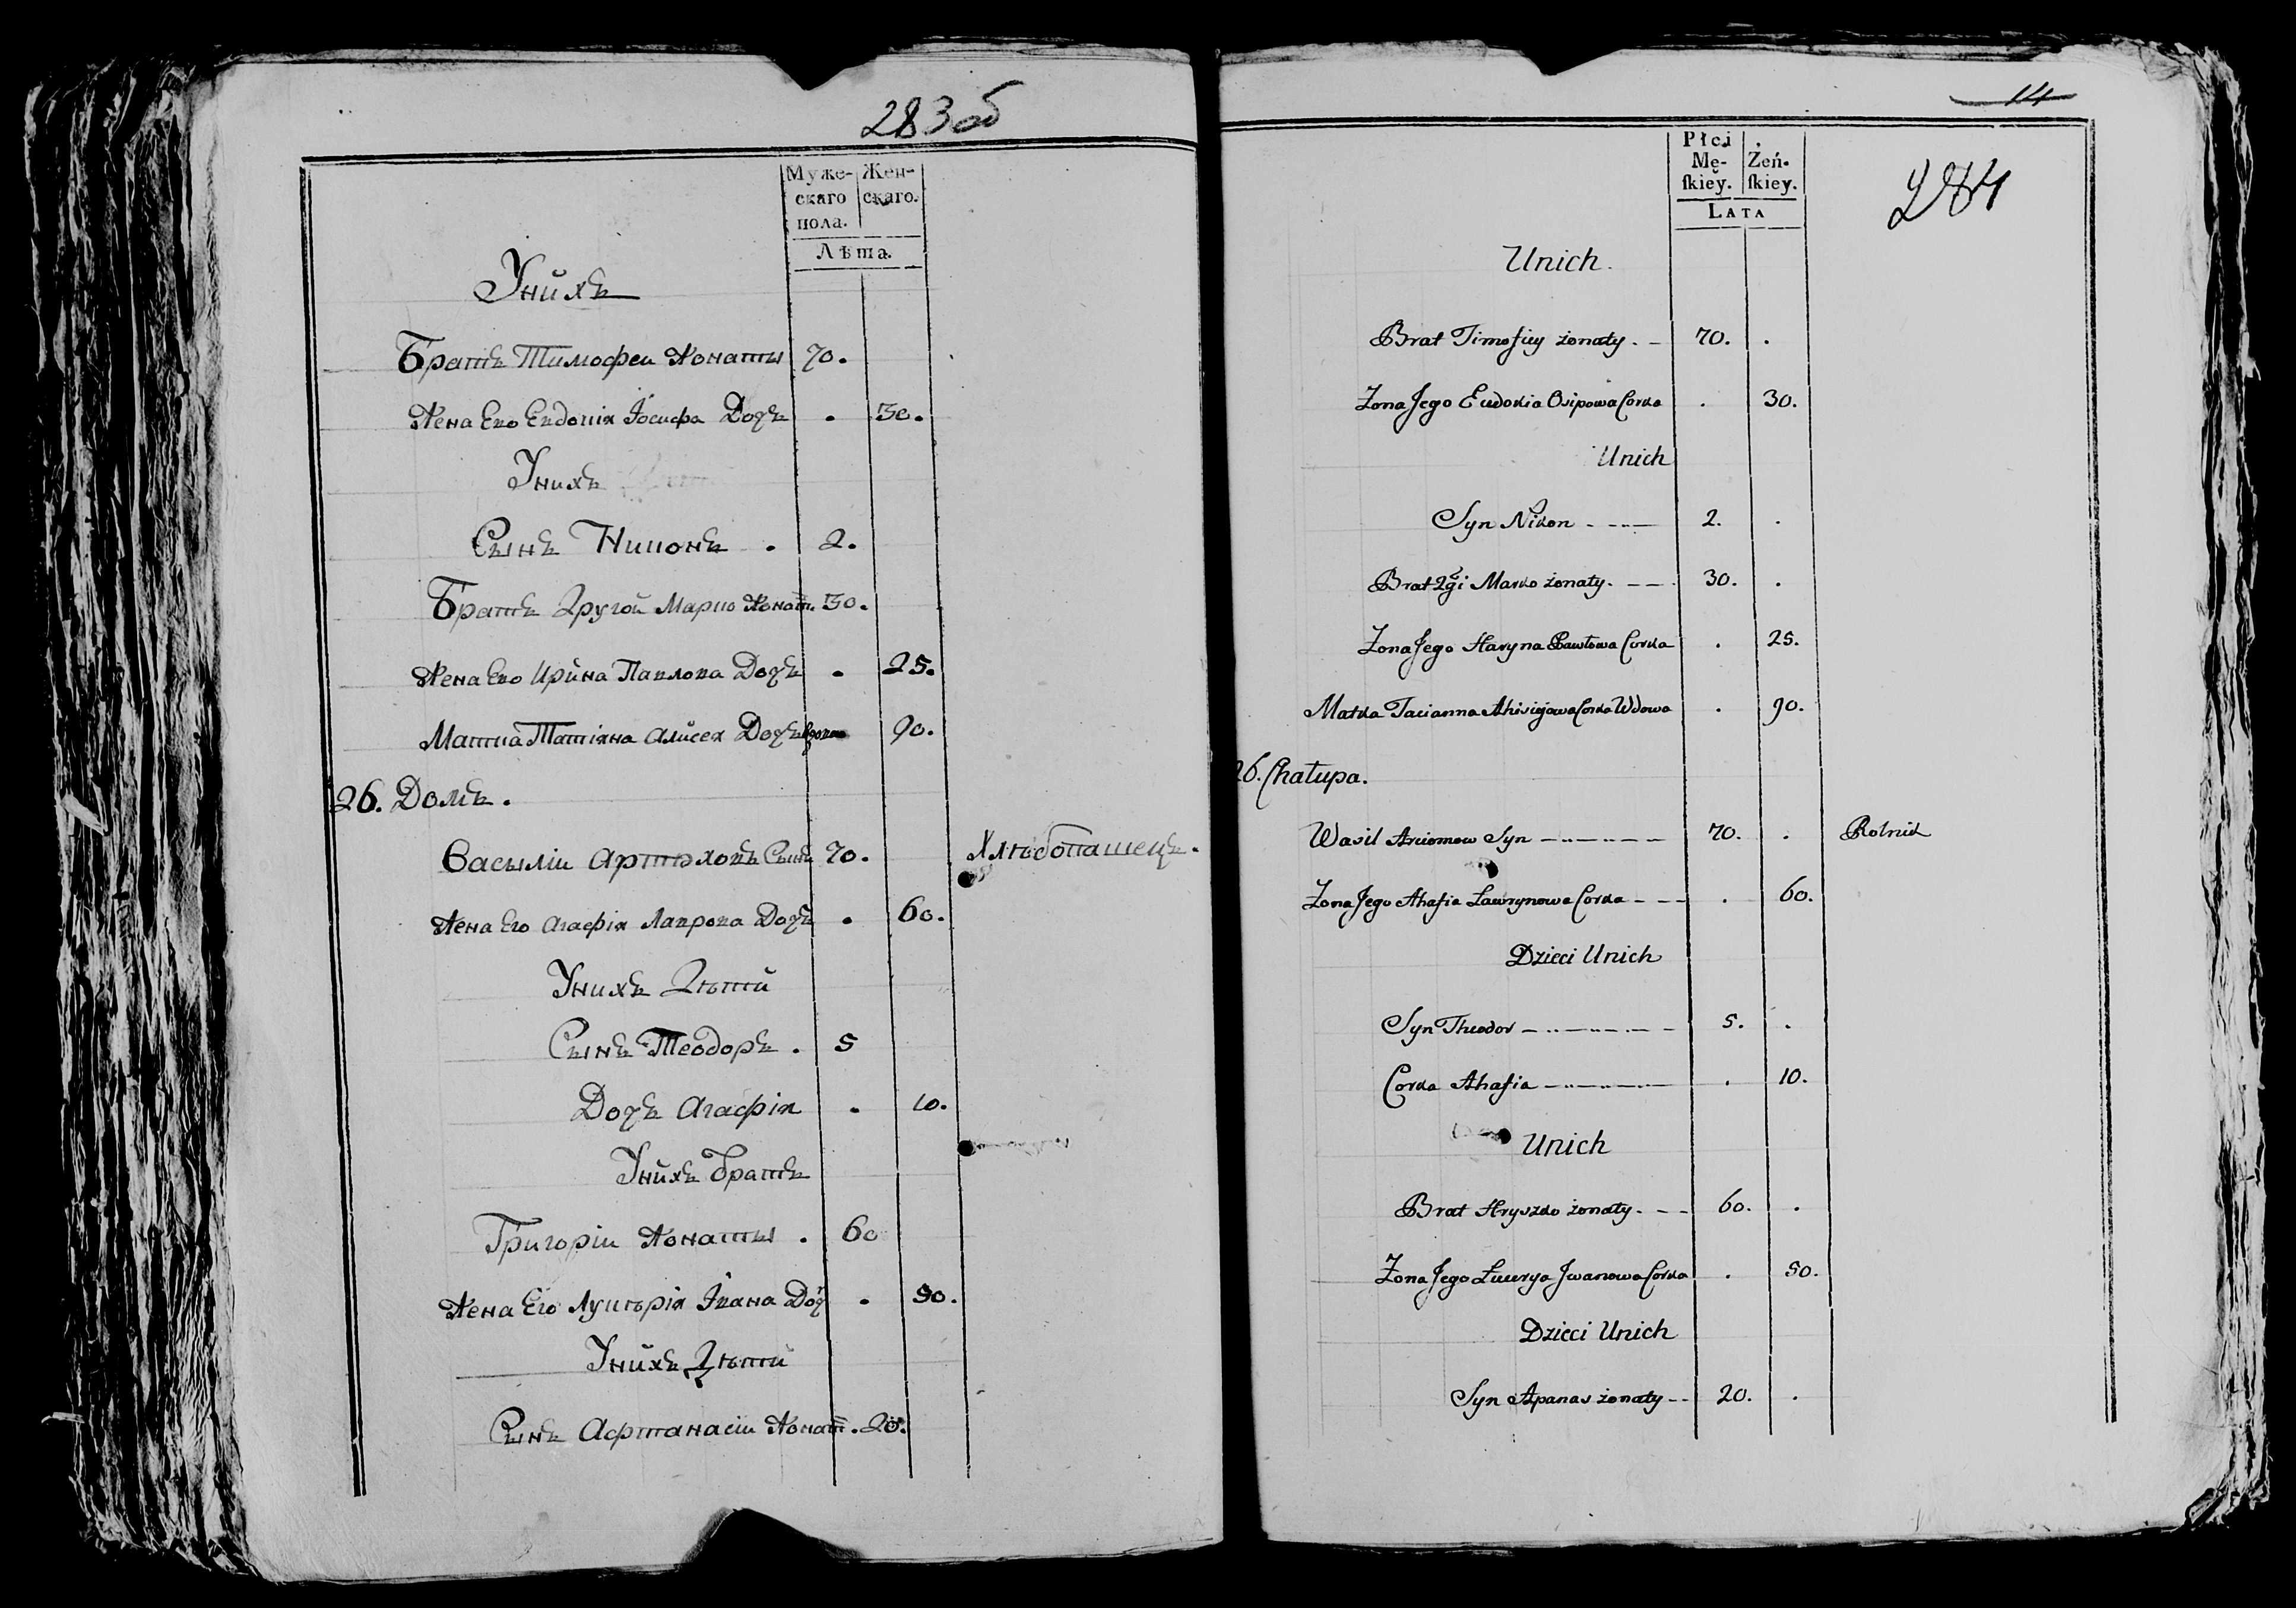 283 об
Муже- Жен-
скаго скаго.
пола.
Лѣта.
Унихъ
Братъ Тимофеи Жонаты 70.
Жена Его Евдокія Іосифа Дочь . 30.
Унихъ
Сынъ Никонъ . 2.
Братъ Другой Марко Жонат. 30.
Жена Его Ирина Павлова Дочь . 25.
Матка Татіяна Алисея Дочь вдова 90.
26. Домъ.
Василіи Артюховъ Сынъ 70. Хлѣбопашецъ.
Жена Его Агафія Лаврова Дочь . 60.
Унихъ Дѣтй
Сынъ Теодоръ . 5
Дочь Агафія . 10.
Унихъ братъ
Григоріи Жонаты . 60
Жена Его Лукѣрія Івана Доч . 50.
Унихъ Дѣтй
Сынъ Афтанасіи Жонат. 20.
14
284
Płci
Mę- Żeń-
ſkiéy. ſkiey.
LATA
Unich.
Brat Timofiey żonaty. – 70. .
Żona Jego Eudokia Osipowa Corka . 30.
Unich
Syn Nikon - - - — 2. .
Brat 2gi Marko żonaty. - — 30. .
Żona Jego Haryna Pawłowa Corka . 25.
Matka Tacianna Ahisiejowa Corka Wdowa . 90.
26. Chałupa.
Wasil Arciomow Syn — - - — - — 70. . Rolnik
Żona Jego Ahafia Ławrynowa Corka - - — . 60.
Dzieci Unich
Syn Theodor — - - — - — 5. .
Corka Ahafia — - - - — . 10.
Unich
Brat Hryszko żonaty. - – 60. .
Żona Jego Łucerya Jwanowa Corka . 50.
Dzieci Unich
Syn Apanas żonaty - – 20. .